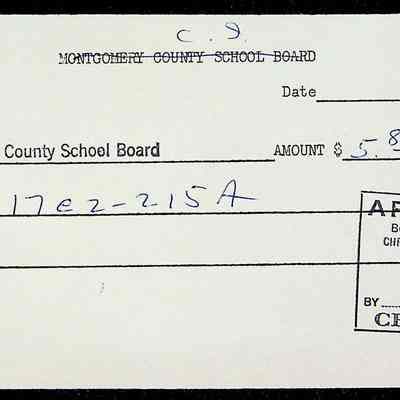 C. S.
MONTGOMERY COUNTY SCHOOL BOARD
Date
County School Board AMOUNT $ 5.8
17e2-215A
BY